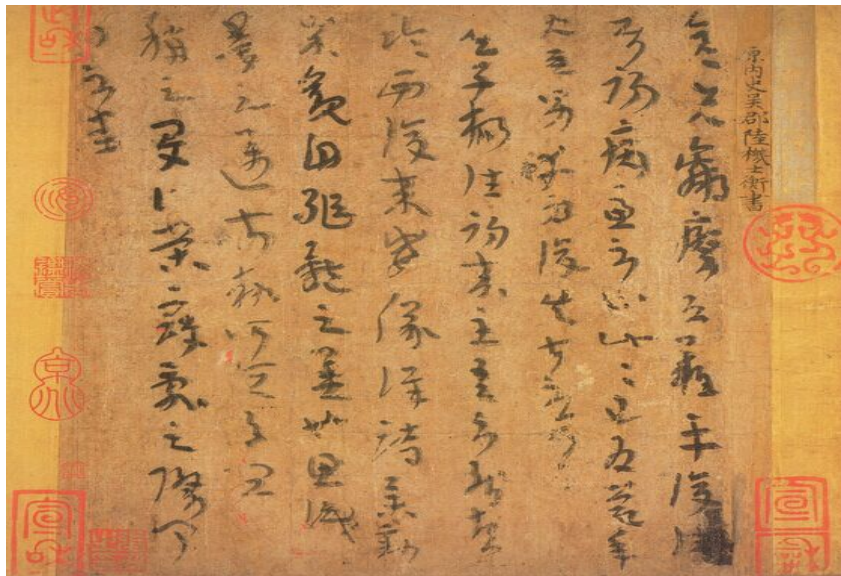 晉內史吳郡陸機士衡書
彦先羸瘵恐難平復往屬
初病慮不止此此已為慶承
使唯男幸為復失前憂耳
子楊往初來主吾不能盡
臨西復來威儀詳跱舉動
成觀自軀體之美也思識
量之邁前執所恒有宜
稱之夏伯榮寇亂之際聞
問不悉
宣和